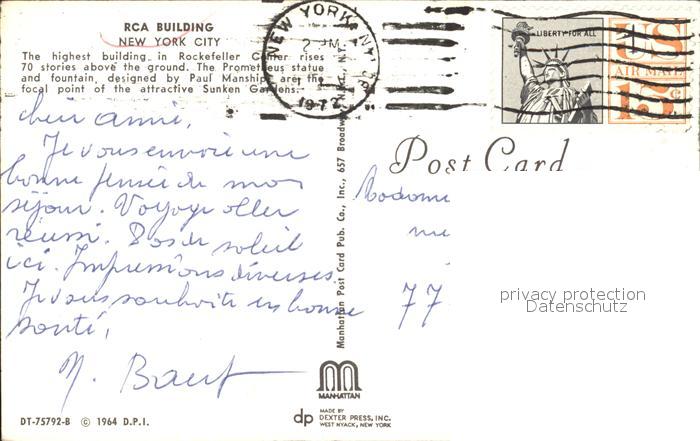 RCA BUILDING
NEW YORK CITY
The highest building in Rockefeller Center rises
70 stories above the ground. The Prometheus statue
and fountain, designed by Paul Manship, are the
focal point of the attractive Sunken Gardens.
NEW YORK, N.Y.
PM
1972
LIBERTY FOR ALL
US
AIR MAIL
15c
Post Card
cher amie,
Je vous envoie une
bonne pensée de mon
séjour. Voyage aller
réussi. Pas de soleil
ici. Impressions diverses.
Je vous souhaite en bonne
santé,
Madame
77
privacy protection
Datenschutz
Manhattan Post Card Pub. Co., Inc., 657 Broadway, N.Y.C., N.Y.
MANHATTAN
dp MADE BY
DEXTER PRESS, INC.
WEST NYACK, NEW YORK
DT-75792-B © 1964 D.P.I.